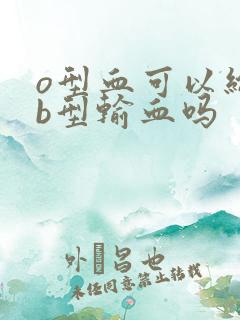 o型血可以给
b型输血吗
外 昌也
未经同意禁止转载